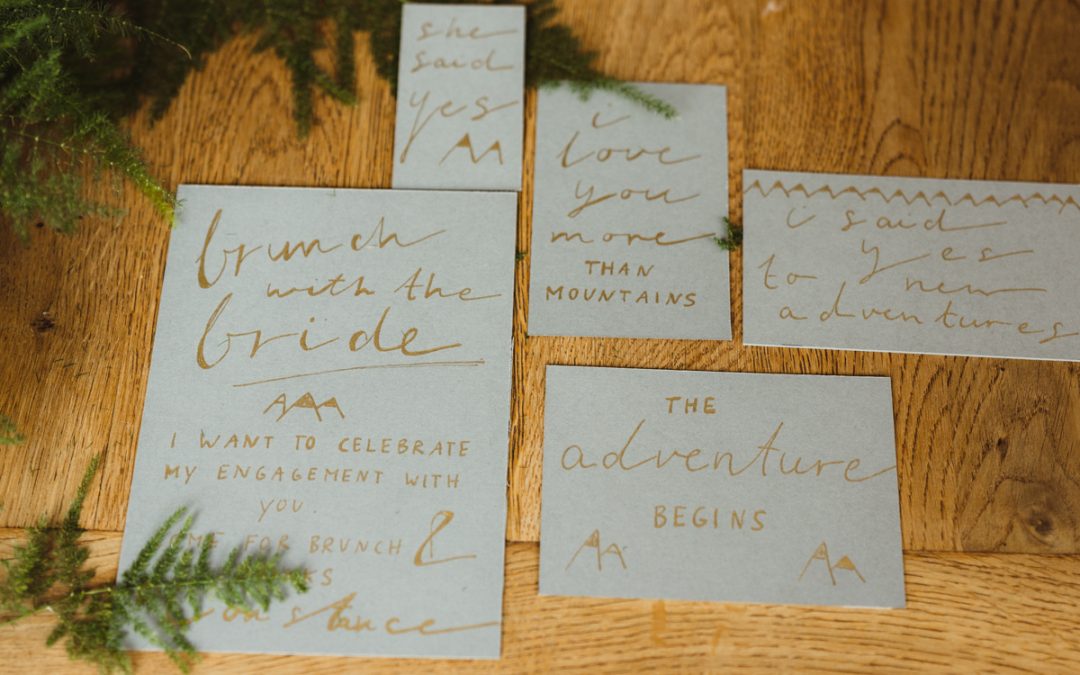 she
said
yes
i
love
you
more
THAN
MOUNTAINS
i said
yes
to new
adventures
brunch
with the
bride
I WANT TO CELEBRATE
MY ENGAGEMENT WITH
YOU.
FOR BRUNCH &
THE
adventure
BEGINS